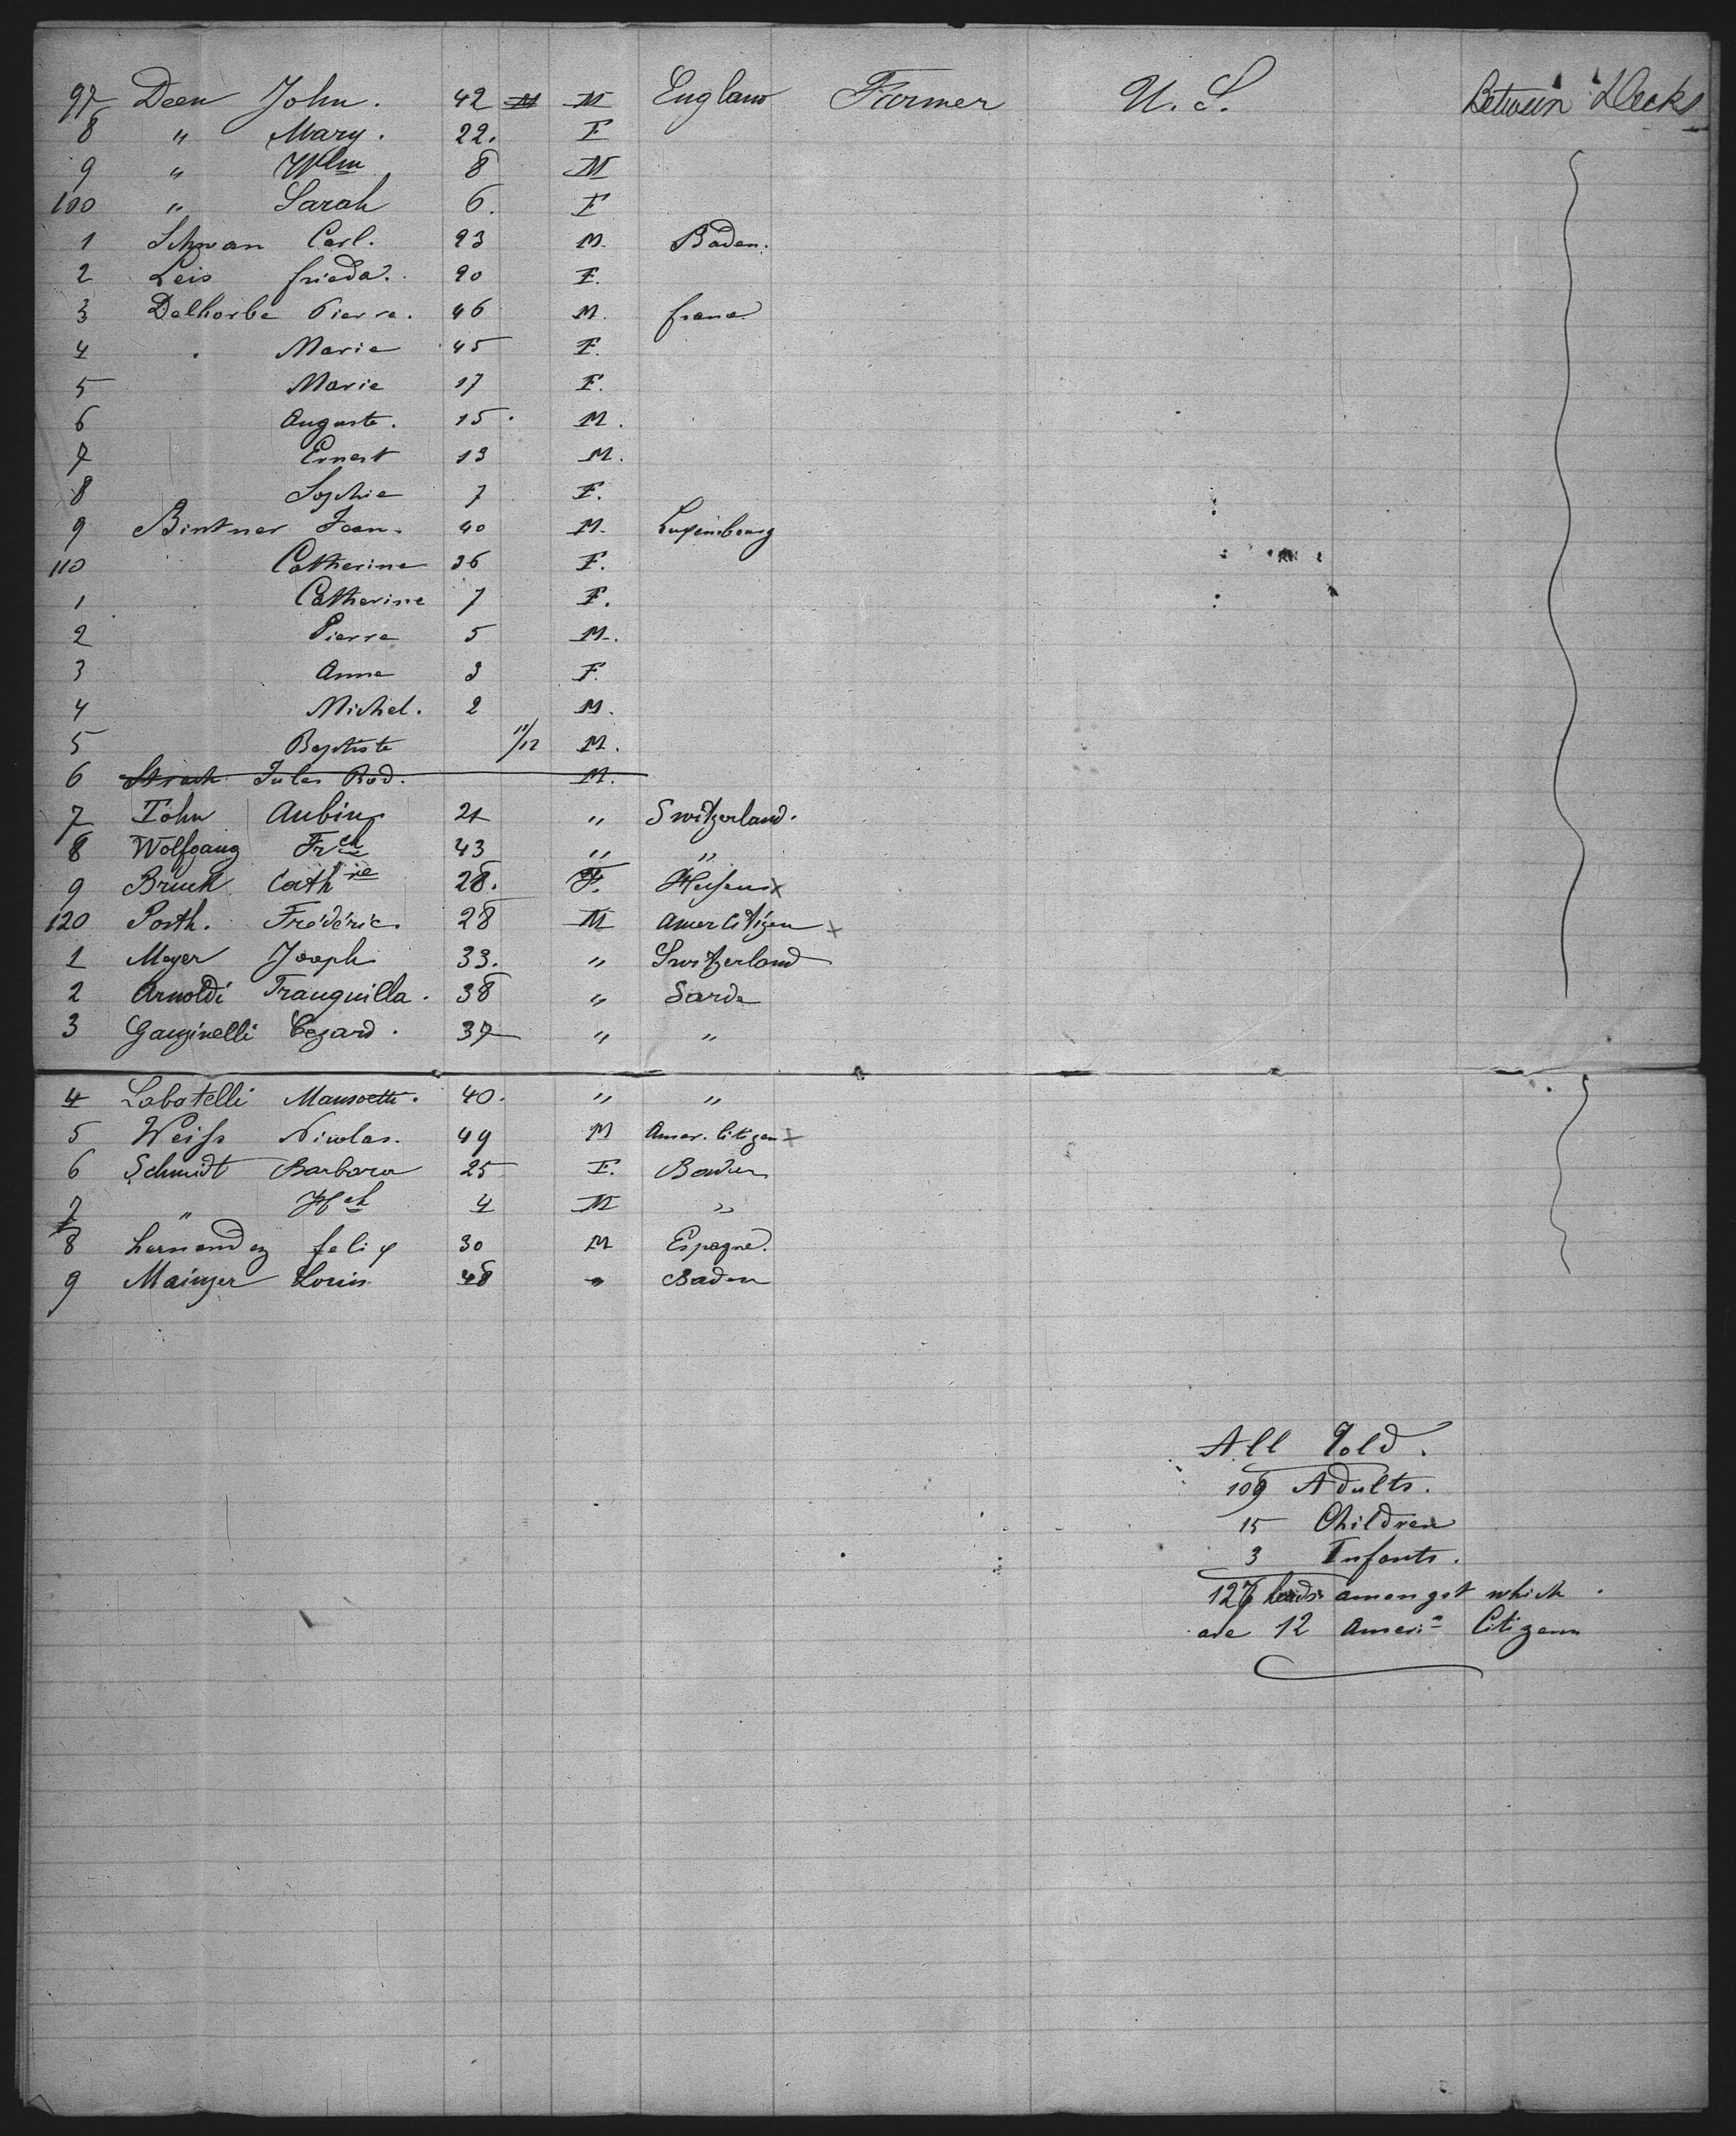 97 Deen John. 42 M M England Farmer U. S. Between Decks
8 " Mary. 22. F
9 " Wlm 8 M
100 " Sarah 6. F
1 Schwan Carl. 23 M. Baden.
2 Leis frieda. 20 F.
3 Delhorbe Pierre. 46 M. france
4 . Marie 45 F.
5 Marie 17 F.
6 Auguste. 15. M.
7 Ernest 13 M.
8 Sophie 7 F.
9 Bintner Jean. 40 M. Luxembourg
110 Catherine 36 F.
1 Catherine 7 F.
2 Pierre 5 M.
3 Anna 3 F.
4 Michel. 2 M.
5 Baptiste 11/12 M.
6 Jules Rod. M.
7 John Aubin 21 " Switzerland.
8 Wolfgang Frch 43 " "
9 Bruch Cathne 28. F. x
120 Porth. Fréderic. 28 M Amer Citizen x
1 Meyer Joseph 33. " Switzerland
2 Arnoldi Tranquilla. 38 " Sarde
3 Ganzinelli Cezard. 37 " "
4 Labatelli 40. " "
5 Weiss Nicolas. 49 M Amer. Citizen x
6 Schmidt Barbara 25 F. Baden
7 " Hch 4 M "
8 hernandez felix 30 M Espagne.
9 Mainzer Louis 48 " Baden
All Told.
109 Adults.
15 Children
3 Infants.
127 heads amongst which
are 12 Ameri= Citizens